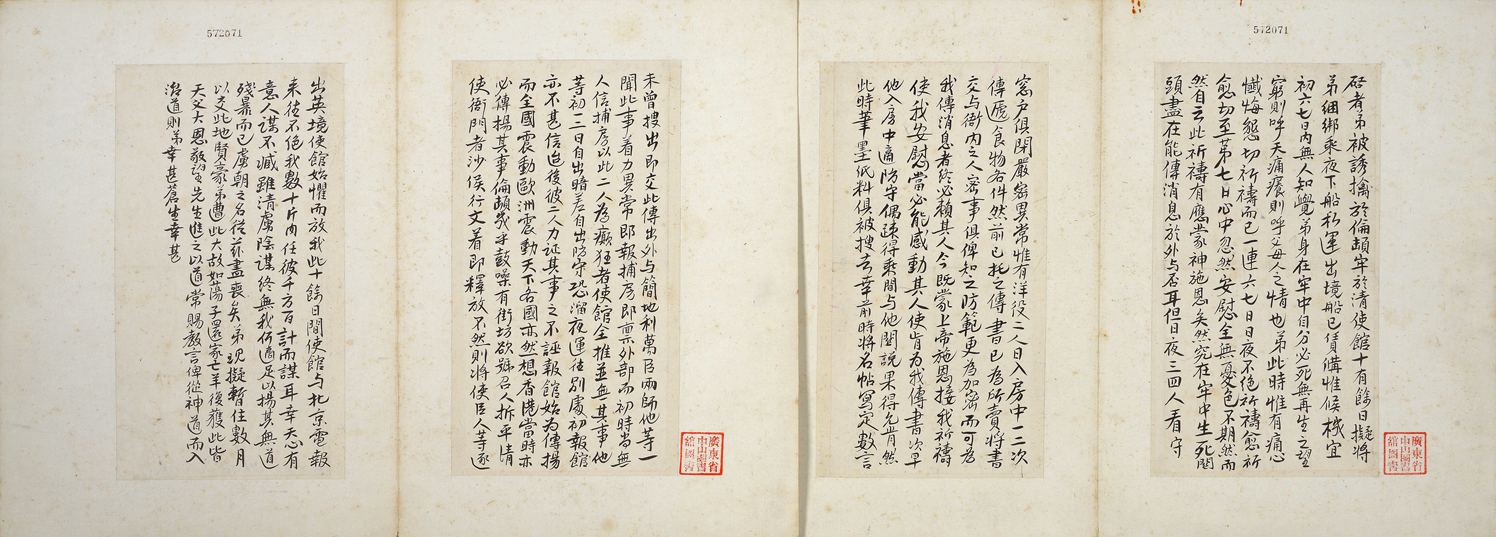 572071
啓者弟被誘擒於倫頓牢於清使館十有餘日擬將
弟綑綁乘夜下船私運出境船已賃購惟候機宜
初六七日內無人知覺弟身在牢中自分必死無再生之望
窮則呼天痛癢則呼父母人之情也弟此時惟有痛心
懺悔懇切祈禱而已一連六七日日夜不絕祈禱愈祈
愈切至第七日心中忽然安慰全無憂色不期然而
然自云此祈禱有應蒙神施恩矣然究在牢中生死關
頭盡在能傳消息於外与否耳但日夜三四人看守
廣東省
中山圖書
舘圖書
窓户俱閉嚴密異常惟有洋役二人日入房中一二次
傳遞食物各件然前已托之傳書已為所賣將書
交与衙內之人密事俱俾知之防範更為加密而可為
我傳消息者終必賴其人今既蒙上帝施恩接我祈禱
使我安慰當必能感動其人使肯為我傳書次早
他入房中適防守偶踈得乘間与他關說果得允肯然
此時筆墨紙料俱被搜去幸前時將名帖寫定數言
廣東省
中山圖書
舘圖書
未曾搜出即交此傳出外与簡地利萬臣兩師他等一
聞此事着力異常即報捕房即稟外部而初時尚無
人信捕房以此二人為癲狂者使館全推並無其事他
等初二日自出暗差自出防守恐溜夜運往別處初報館
亦不甚信迨後彼二人力証其事之不誣報館始為傳揚
而全國震動歐洲震動天下各國亦然想香港當時亦
必傳揚其事倫頓幾乎鼓噪有街坊欲號召人拆平清
使衙門者沙侯行文着即釋放不然則將使臣人等逐
572071
出英境使館始懼而放我此十餘日間使館与北京電報
來往不絕我數十斤肉任彼千方百計而謀耳幸天心有
意人謀不臧雖清虜陰謀終無我何適足以揚其無道
殘暴而已虜朝之名從茲盡喪矣弟現擬暫住數月
以交此地賢豪弟遭此大故如蕩子還家亡羊復獲此皆
天父大恩敬望先生進之以道常賜教言俾從神道而入
治道則弟幸甚蒼生幸甚